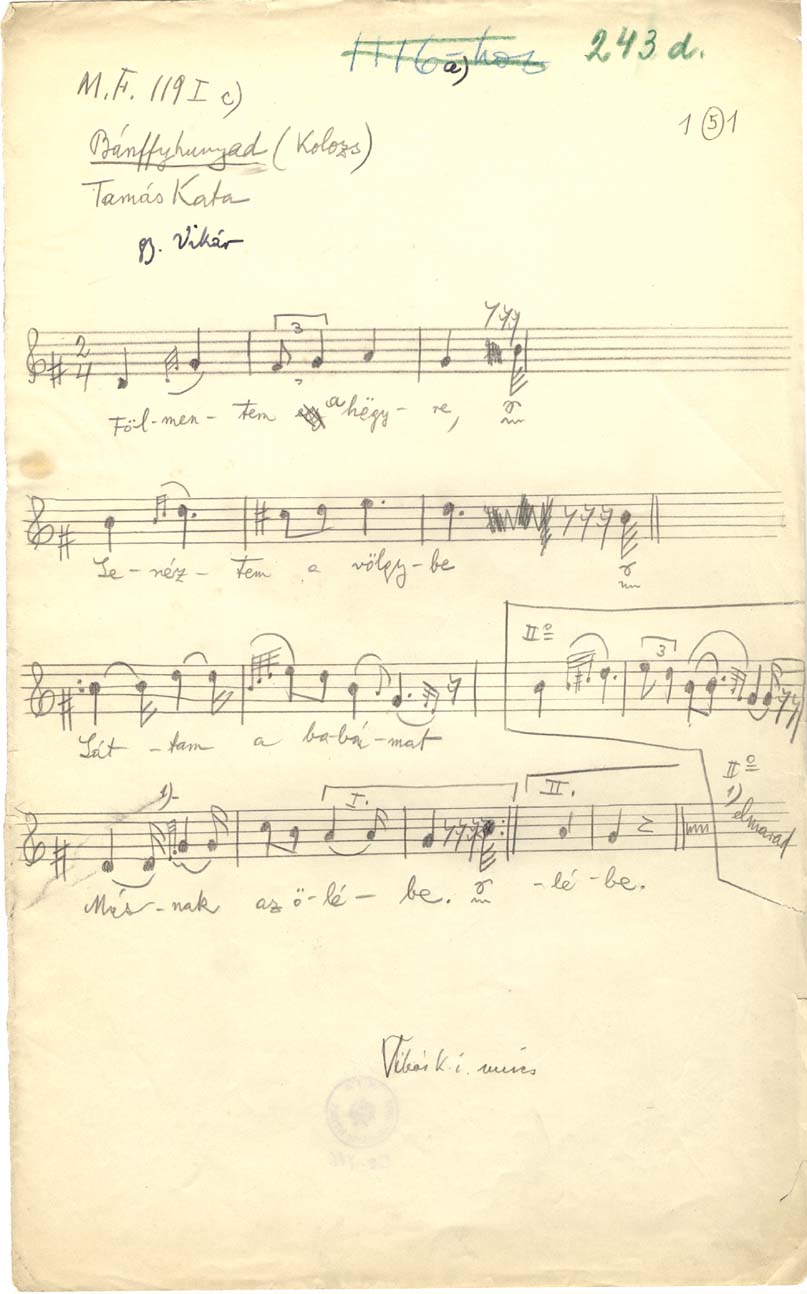 243 d.
a)
M.F. 119 I c)
1 5 1
Bánffyhunyad (Kolozs)
Tamás Kata
gy. Vikár
2 4
3
Föl-men-tem a hëgy-re,
Le-néz-tem a völgy-be
IIº
3
Lát-tam a ba-bá-mat
IIº
1) elmarad
1)
I.
II.
Más-nak az ö-lé-be. -lé-be.